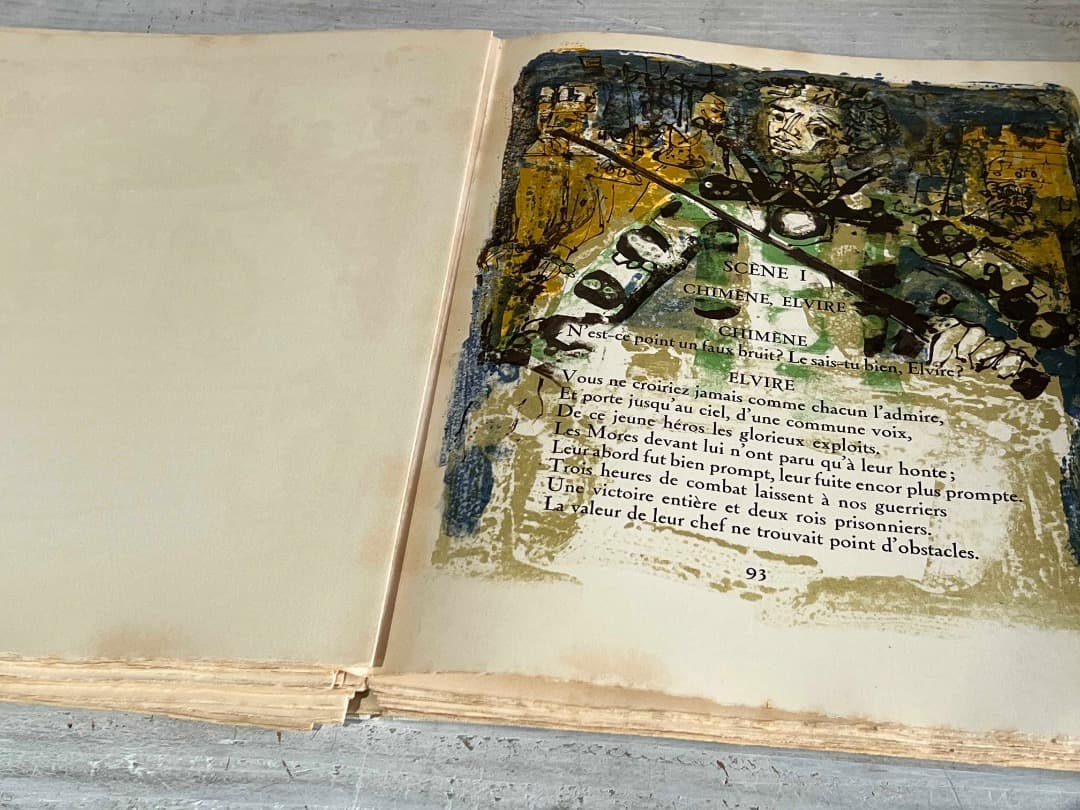 SCÈNE I
CHIMÈNE, ELVIRE
CHIMÈNE
N'est-ce point un faux bruit? Le sais-tu bien, Elvire?
ELVIRE
Vous ne croiriez jamais comme chacun l'admire,
Et porte jusqu'au ciel, d'une commune voix,
De ce jeune héros les glorieux exploits.
Les Mores devant lui n'ont paru qu'à leur honte;
Leur abord fut bien prompt, leur fuite encor plus prompte.
Trois heures de combat laissent à nos guerriers
Une victoire entière et deux rois prisonniers.
La valeur de leur chef ne trouvait point d'obstacles.
93